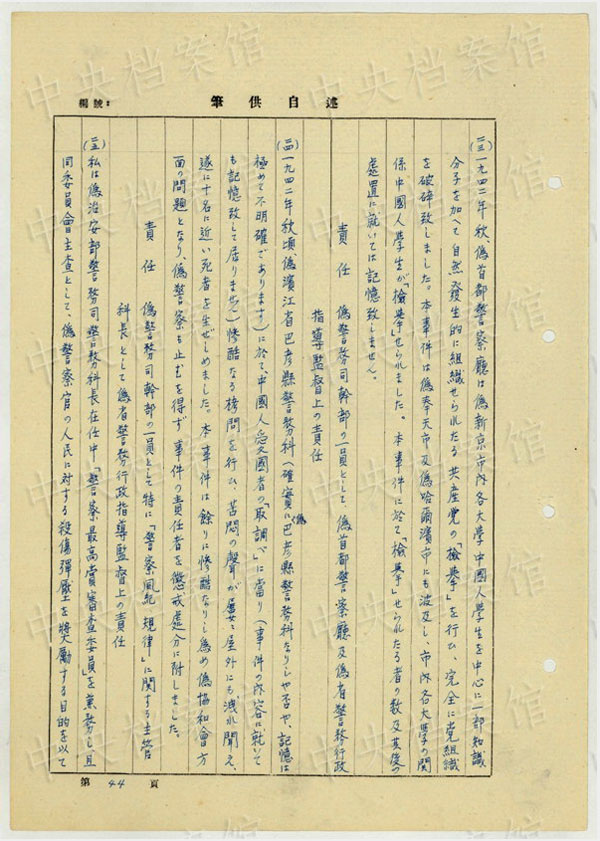 述自供筆
編號：
(三)一九四二年秋偽首都警察廳は偽新京市內各大學中國人學生を中心に一部知識
分子を加へて自然發生的に組織せられたる共產党の「檢擧」を行ひ、完全に党組識
を破碎致しました。本事件は偽奉天市及偽哈爾濱市にも波及し、市內各大學の関
係中國人學生が「檢擧」せられました。本事件に於て「檢擧」せられたる者の数及其後の
處置に就いては記憶致しません。
責任　偽警務司幹部の一員として偽首都警察廳及偽省警務行政
指導監督上の責任
(四)一九四二年秋頃、偽濱江省巴彦縣警務科(確實に偽巴彦縣警務科なりしや否や、記憶は
極めて不明確であります)に於て、中國人愛国者の「取調べ」に當り(事件の內容に就いて
も記憶致して居りません)惨酷なる拷問を行ひ、苦悶の聲が屢々屋外にも洩れ聞え、
遂に十名に近い死者を生ぜしめました。本事件は餘りに惨酷なりし為め偽協和會方
面の問題となり、偽警察も止むを得ず事件の責任者を懲戒處分に附しました。
責任　偽警務司幹部の一員として特に「警察風紀規律」に関する主管
科長として偽省警務行政指導監督上の責任
(五)私は偽治安部警務司警務科長在任中、「警察最高賞審查委員」を兼務し、且
同委員會主查として、偽警察官の人民に対する殺傷彈壓を奬勵する目的を以て
第44頁
中央档案馆